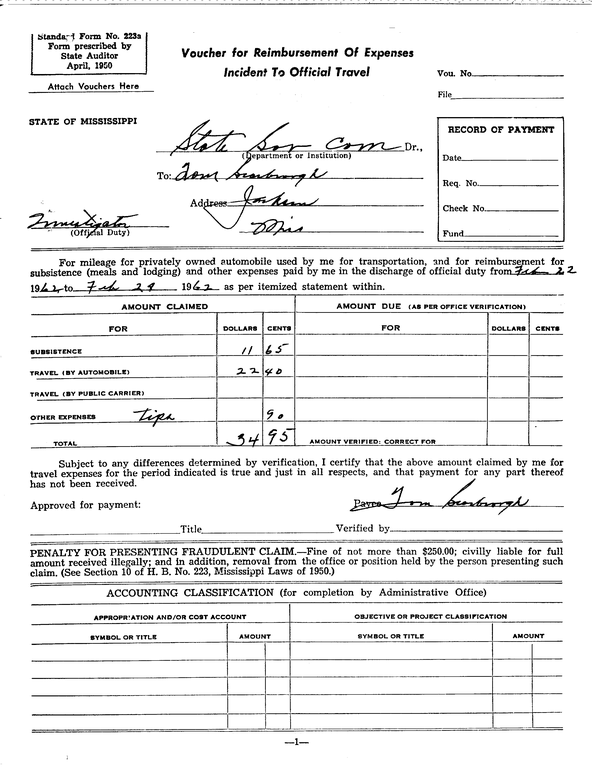 Standard Form No. 223a
Form prescribed by
State Auditor
April, 1950
Attach Vouchers Here
Voucher for Reimbursement Of Expenses
Incident To Official Travel
Vou. No.
File
STATE OF MISSISSIPPI
State Sov Com Dr.,
(Department or Institution)
To: Tom Scarbrough
Address Jackson
Miss
Investigator
(Official Duty)
RECORD OF PAYMENT
Date
Req. No.
Check No.
Fund
For mileage for privately owned automobile used by me for transportation, and for reimbursement for
subsistence (meals and lodging) and other expenses paid by me in the discharge of official duty from Feb 22
1962 to Feb 29 1962 as per itemized statement within.
AMOUNT CLAIMED AMOUNT DUE (AS PER OFFICE VERIFICATION)
FOR DOLLARS CENTS FOR DOLLARS CENTS
SUBSISTENCE 11 65
TRAVEL (BY AUTOMOBILE) 22 40
TRAVEL (BY PUBLIC CARRIER)
OTHER EXPENSES tips 90
TOTAL 34 95 AMOUNT VERIFIED: CORRECT FOR
Subject to any differences determined by verification, I certify that the above amount claimed by me for
travel expenses for the period indicated is true and just in all respects, and that payment for any part thereof
has not been received.
Approved for payment: Payee Tom Scarbrough
Title Verified by
PENALTY FOR PRESENTING FRAUDULENT CLAIM.—Fine of not more than $250.00; civilly liable for full
amount received illegally; and in addition, removal from the office or position held by the person presenting such
claim. (See Section 10 of H. B. No. 223, Mississippi Laws of 1950.)
ACCOUNTING CLASSIFICATION (for completion by Administrative Office)
APPROPRIATION AND/OR COST ACCOUNT OBJECTIVE OR PROJECT CLASSIFICATION
SYMBOL OR TITLE AMOUNT SYMBOL OR TITLE AMOUNT
—1—